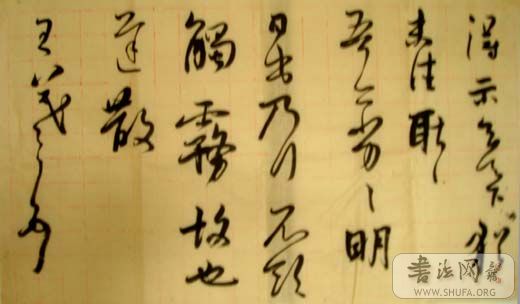 得示知足下猶
未佳耿〻
吾亦劣〻明
日出乃行不欲
觸霧故也
遲散
王羲之頓首
書法网
WWW.SHUFA.ORG